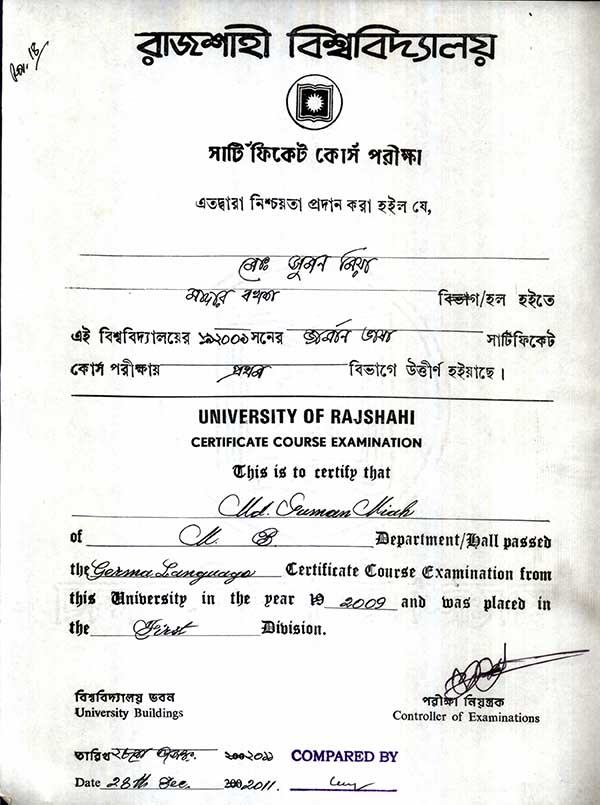 রাজশাহী বিশ্ববিদ্যালয়
সার্টিফিকেট কোর্স পরীক্ষা
এতদ্বারা নিশ্চয়তা প্রদান করা হইল যে,
মোঃ সুমন মিয়া
মাদার বখশ বিভাগ/হল হইতে
এই বিশ্ববিদ্যালয়ের ১৯২০০৯ সনের জার্মান ভাষা সার্টিফিকেট
কোর্স পরীক্ষায় প্রথম বিভাগে উত্তীর্ণ হইয়াছে।
UNIVERSITY OF RAJSHAHI
CERTIFICATE COURSE EXAMINATION
This is to certify that
Md. Suman Miah
of M. B. Department/Hall passed
the Germa Language Certificate Course Examination from
this University in the year 19 2009 and was placed in
the First Division.
বিশ্ববিদ্যালয় ভবন পরীক্ষা নিয়ন্ত্রক
University Buildings Controller of Examinations
তারিখ ২০১১ COMPARED BY
Date 28th Dec. 2011